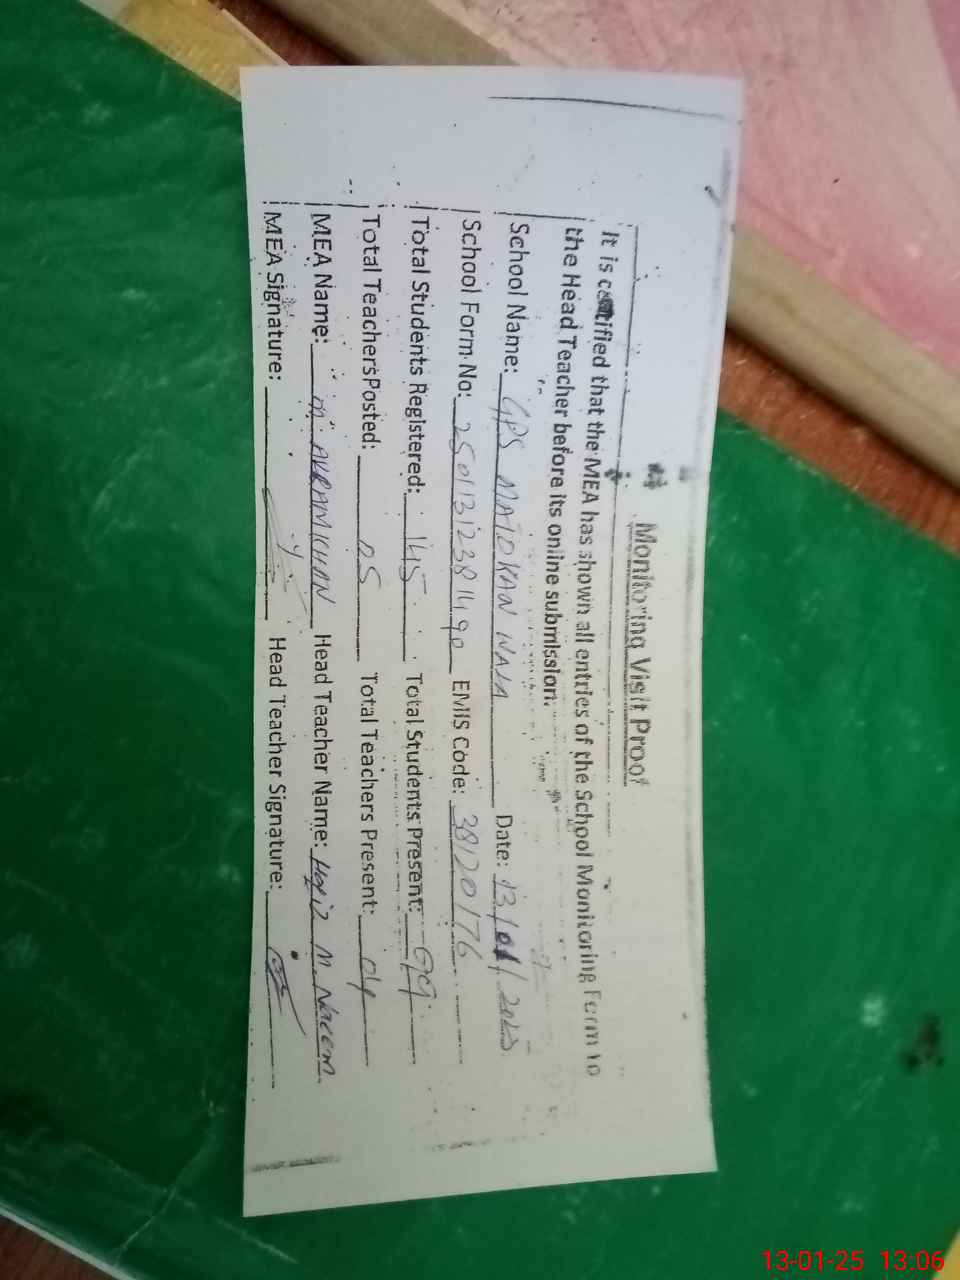 Monitoring Visit Proof
It is certified that the MEA has shown all entries of the School Monitoring Form to
the Head Teacher before its online submission.
School Name: GPS MATOKAN WALA Date: 13/01/2025
School Form No: 25011312381490 EMIS Code: 38120176
Total Students Registered: 145 Total Students Present: 99
Total Teachers Posted: 05 Total Teachers Present: 04
MEA Name: M. AKRAM KHAN Head Teacher Name: Hafiz M. Naeem
MEA Signature: Head Teacher Signature:
13-01-25 13:06